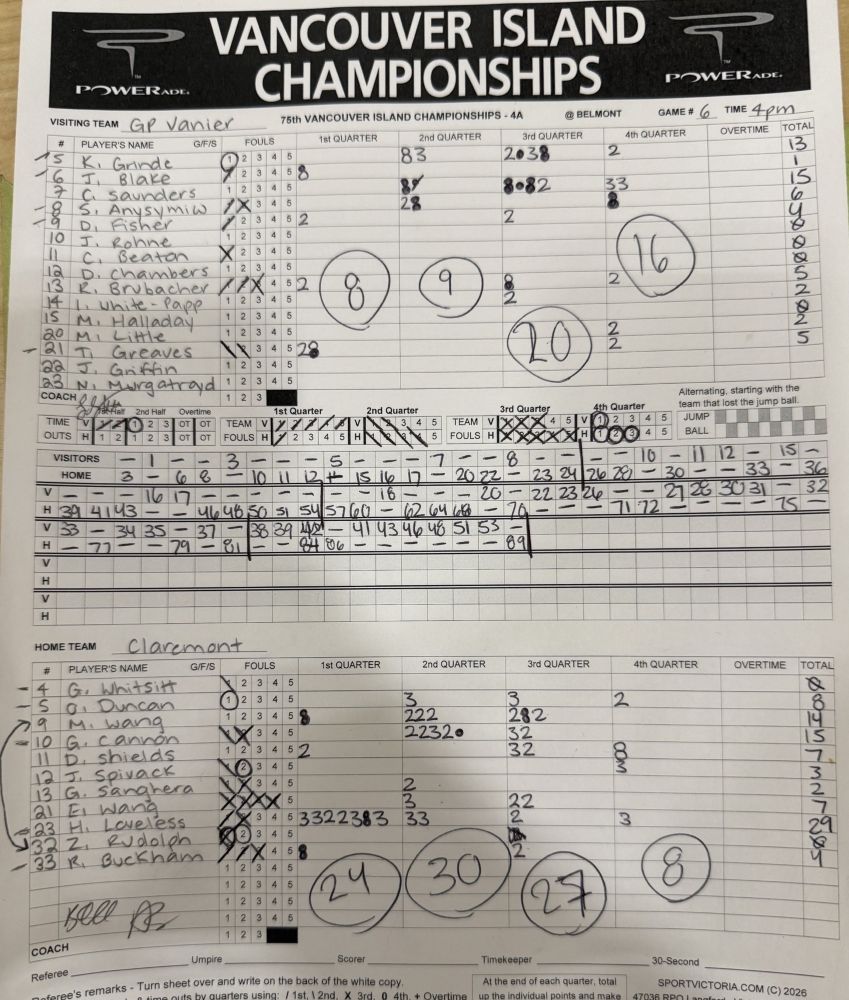 VANCOUVER ISLAND
CHAMPIONSHIPS
POWERADE.
POWERADE.
VISITING TEAM GP Vanier 75th VANCOUVER ISLAND CHAMPIONSHIPS - 4A @ BELMONT GAME # 6 TIME 4pm
# PLAYER'S NAME G/F/S FOULS 1st QUARTER 2nd QUARTER 3rd QUARTER 4th QUARTER OVERTIME TOTAL
5 K. Grinde 1 2 3 4 5 83 2 13
6 J. Blake 1
7 C. Saunders 1 2 3 4 5 33 15
8 S. Anysymiw 6
9 D. Fisher 2 2 4
10 J. Rohne 1 2 3 4 5 0
11 C. Beaton 0
12 D. Chambers 1 2 3 4 5 0
13 R. Brubacher 2 2 5
14 L. White-Papp 1 2 3 4 5 2 2
15 M. Halladay 1 2 3 4 5 0
20 M. Little 1 2 3 4 5 2 2
21 T. Greaves 2 5
22 J. Griffin 1 2 3 4 5
23 N. Murgatroyd 1 2 3 4 5
8 9 20 16
COACH 1 2 3
Alternating, starting with the team that lost the jump ball.
1st Half 2nd Half Overtime 1st Quarter 2nd Quarter 3rd Quarter 4th Quarter
TIME OUTS V H TEAM FOULS V H TEAM FOULS V H JUMP BALL
VISITORS - 1 - - 3 - - - 5 - - - 7 - - 8 - - - - 10 - 11 12 - 15 -
HOME 3 - 6 8 - 10 11 12 - 15 16 17 - 20 22 - 23 24 26 28 - 30 - - 33 - 36
V - - - 16 17 - - - - - - 18 - - - 20 - 22 23 26 - - 27 28 30 31 - 32
H 39 41 43 - - 46 48 50 51 54 57 60 - 62 64 68 - 70 - - - - 71 72 - - - 75 -
V 33 - 34 35 - 37 - 38 39 42 - 41 43 46 48 51 53 -
H - 77 - - 79 - 81 - - 84 86 - - - - - - 89
V
H
V
H
HOME TEAM Claremont
# PLAYER'S NAME G/F/S FOULS 1st QUARTER 2nd QUARTER 3rd QUARTER 4th QUARTER OVERTIME TOTAL
4 G. Whitsitt 0
5 O. Duncan 3 3 2 8
9 M. Wang 1 2 3 4 5 222 282 14
10 G. Cannon 2232 32 15
11 D. Shields 1 2 3 4 5 2 32 8 7
12 J. Spivack 3 3
13 G. Sanghera 2 2
21 E. Wang 3 22 7
23 H. Loveless 3322383 33 2 3 29
32 Z. Rudolph 0
33 R. Buckham 2 4
1 2 3 4 5
1 2 3 4 5
1 2 3 4 5
1 2 3 4 5
24 30 27 8
COACH 1 2 3
Referee Umpire Scorer Timekeeper 30-Second
Referee's remarks - Turn sheet over and write on the back of the white copy.
& time outs by quarters using: / 1st, \ 2nd, X 3rd, 0 4th, + Overtime
At the end of each quarter, total
up the individual points and make
SPORTVICTORIA.COM (C) 2026